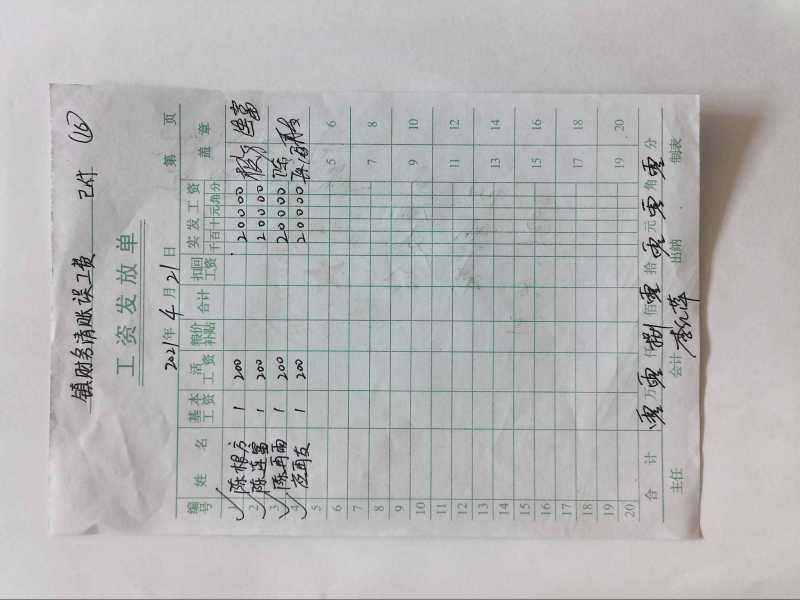 镇财务清账误工费 已付 (16)
工资发放单
2021年4月21日 第 页
编号 姓名 基本工资 活工资 粮价补贴 合计 扣回工资 实发工资 千百十元角分 盖章
1 陈根方 1 200 20000 根方
2 陈连富 1 200 20000 连富
3 陈再雨 1 200 20000 陈
4 应再友 1 200 20000
5 5 6
6
7 7 8
8
9 9 10
10
11 11 12
12
13 13 14
14
15 15 16
16
17 17 18
18
19 19 20
20
合计 零万零仟捌佰零拾零元零角零分
主任 会计 李红萍 出纳 制表